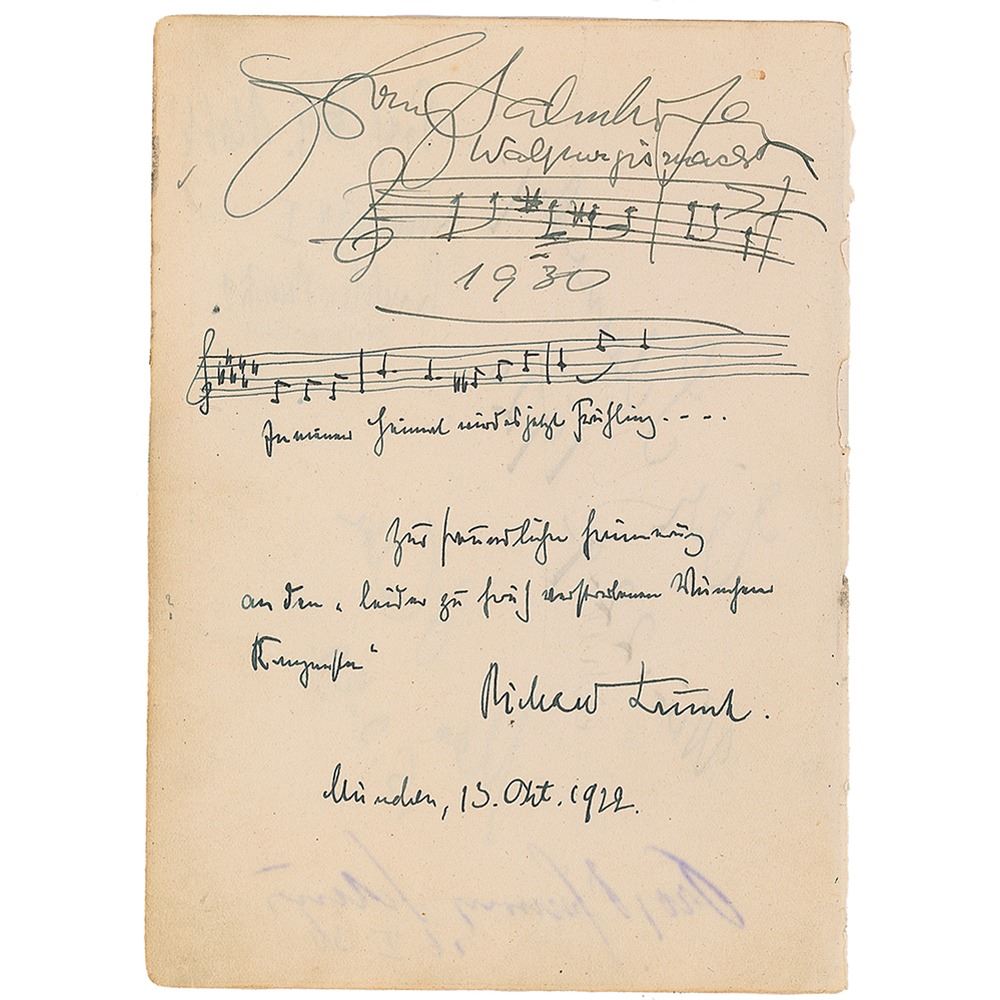 Franz Salmhofer
Walpurgisnacht
1930
In meiner Heimat wird es jetzt Frühling. - - - .
Zur freundlichen Erinnerung
an den „leider zu früh verstorbenen Münchner
Komponisten“
Richard Trunk.
München, 13. Okt. 1922.